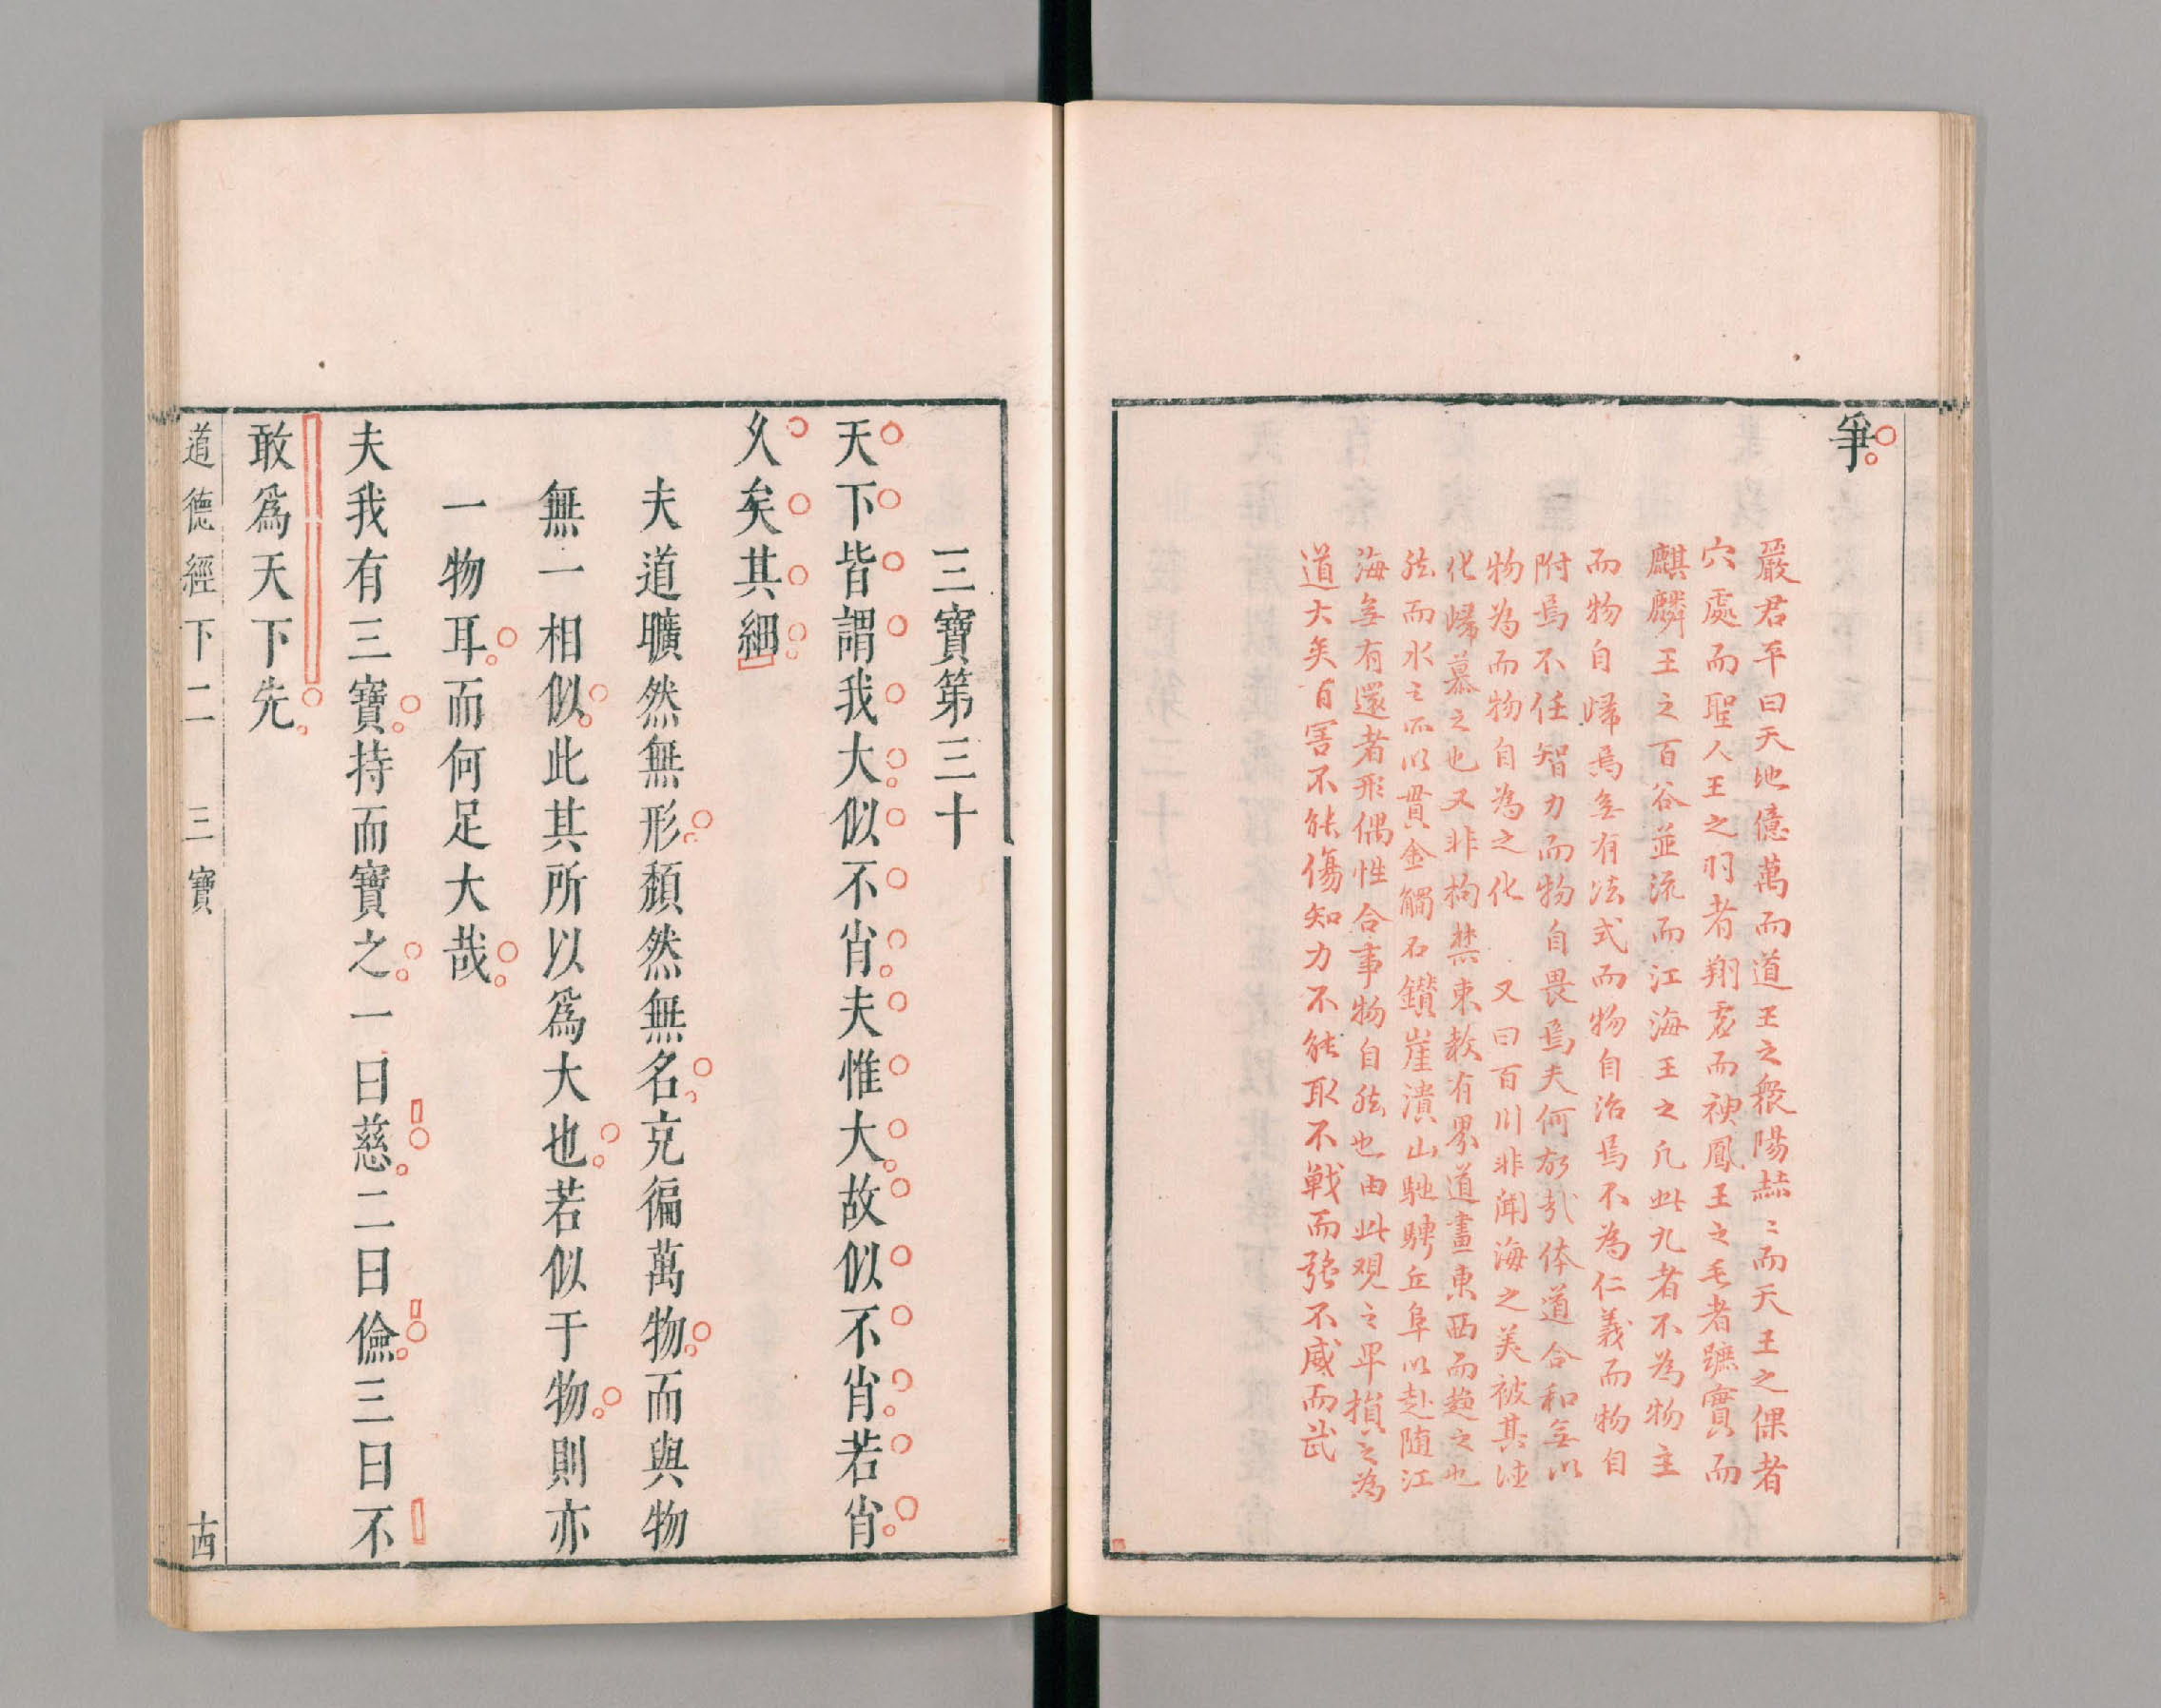 爭
嚴君平曰天地億萬而道王之衆陽赫〻而天王之倮者
穴處而聖人王之羽者翔虛而神鳳王之毛者蹠實而
麒麟王之百谷並流而江海王之凡此九者不為物主
而物自歸焉無有法式而物自治焉不為仁義而物自
附焉不任智力而物自畏焉夫何故哉体道合和無以
物為而物自為之化 又曰百川非聞海之美被其德
化歸慕之也又非拘禁束教有界道畫東西而趨之也
然而水之所以貫金觸石鑽崖潰山馳騁丘阜以赴隨江
海無有還者形偶性合事物自然也由此观之卑損之為
道大矣百害不能傷知力不能取不戰而強不威而武
三寶第三十
天下皆謂我大似不肖夫惟大故似不肖若肖
久矣其細
夫道曠然無形頹然無名充徧萬物而與物
無一相似此其所以爲大也若似于物則亦
一物耳而何足大哉
夫我有三寶持而寶之一曰慈二曰儉三曰不
敢爲天下先
道德經下二 三寶 十四